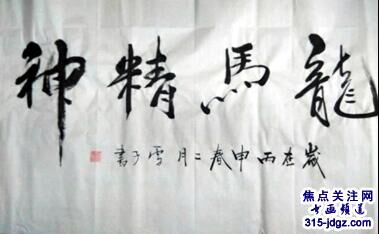 龍馬精神
歲在丙申春二月雪子書
焦点关注网
书画频道
315-jdgz.com